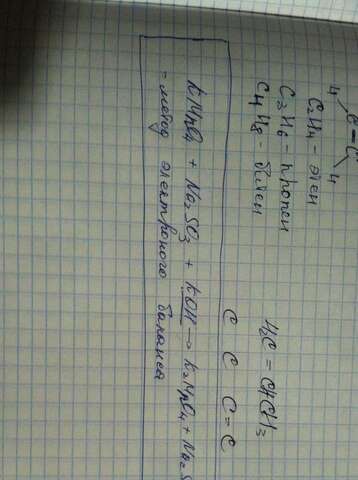 H
C=C
H H
C₂H₄ - этен
C₃H₆ - пропен
C₄H₈ - бутен
H₂C = CHCH₃
C C C=C
KMnO₄ + Na₂SO₃ + KOH → K₂MnO₄ + Na₂S
- метод электроного баланса